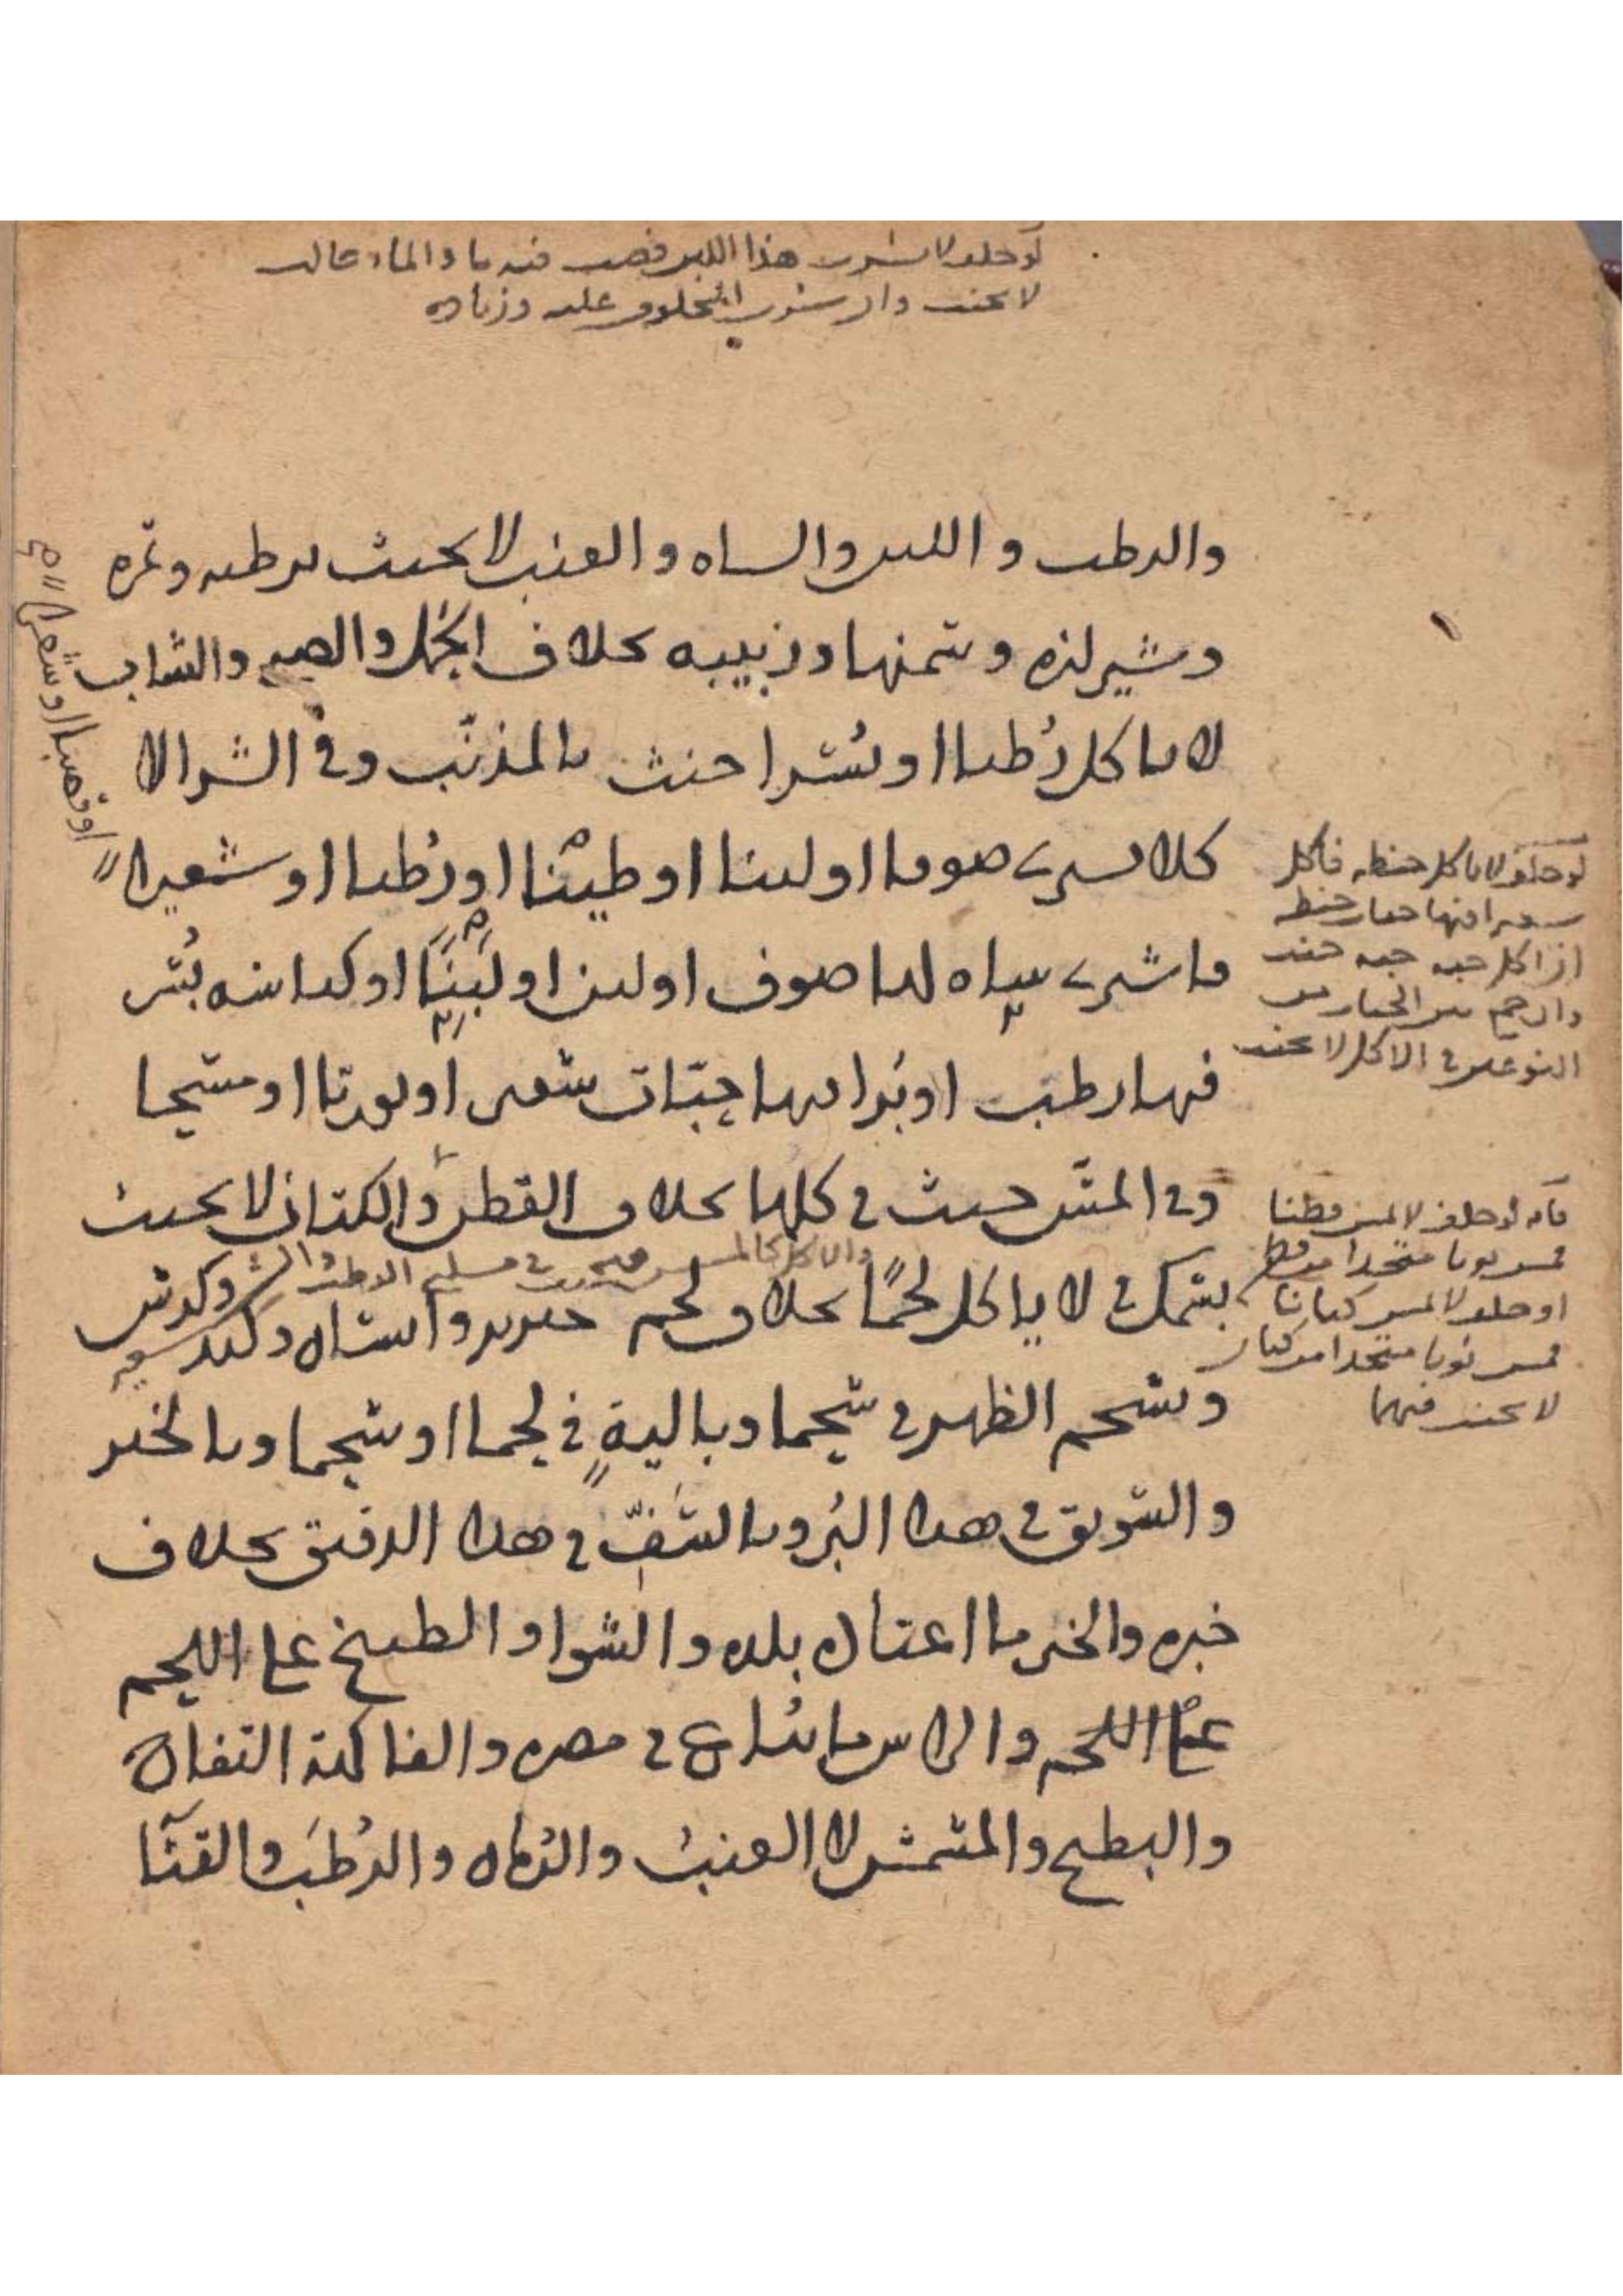 لو حلف لا يشرب هذا اللبن فصب فيه ما والماء غالب
لا يحنث وان شرب المحلوف عليه وزيادة
والرطب واللبن والساه والعنب لا يحنث برطبه وتمره
وشيرازه وسمنها وزبيبه بخلاف الحمل والصبي والشاب
لا ياكل رطبا او بسرا حنث بالمذنب وفي الشرا لا
كلا يشتري صوفا او لبنا او طينا او رطبا او شعيرا
او قصبا او شعرا
فاشتري شاه لها صوف او لبن او لبنا او كباسه بسر
فيها رطب او برا فيها حبات شعير او
وفي المس حنث في كلها بخلاف القطن والكتان لا يحنث
بسمك في لا ياكل لحما بخلاف لحم خنزير وانسان وكبد وكرش
وشحم الظهر في شحما وبالية في لحما او شحما وبالخبز
والسويق في هذا البر وبالسف في هذا الدقيق بخلاف
خبزه والخبز ما اعتاد بلده والشوا والطبيخ على اللحم
على اللحم والراس ما يباع في مصره والفاكهة التفاح
والبطيخ والمشمش لا العنب والرمان والرطب والقثا
لو حلف لا ياكل حنطه فاكل
شعيرا فيها حنطه
اذا اكل حبه حبه حنث
وان جمع بين
النوعين في الاكل لا يحنث
فانه لو حلف لا يمس قطنا
فمس ثوبا متخدا من قطن
او حلف لا يمس كتانا
فمس ثوبا متخدا من كتان
لا يحنث فيهما